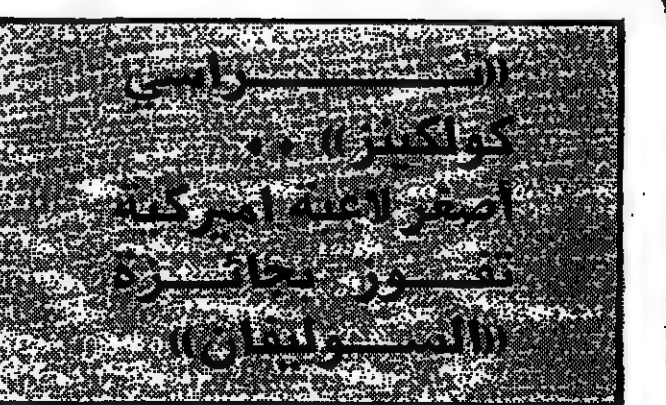 ((تـــراسي
كولكينز)) ..
أصغر لاعبة اميركية
تفـــوز بجائـــزة
((الســـوليفان))